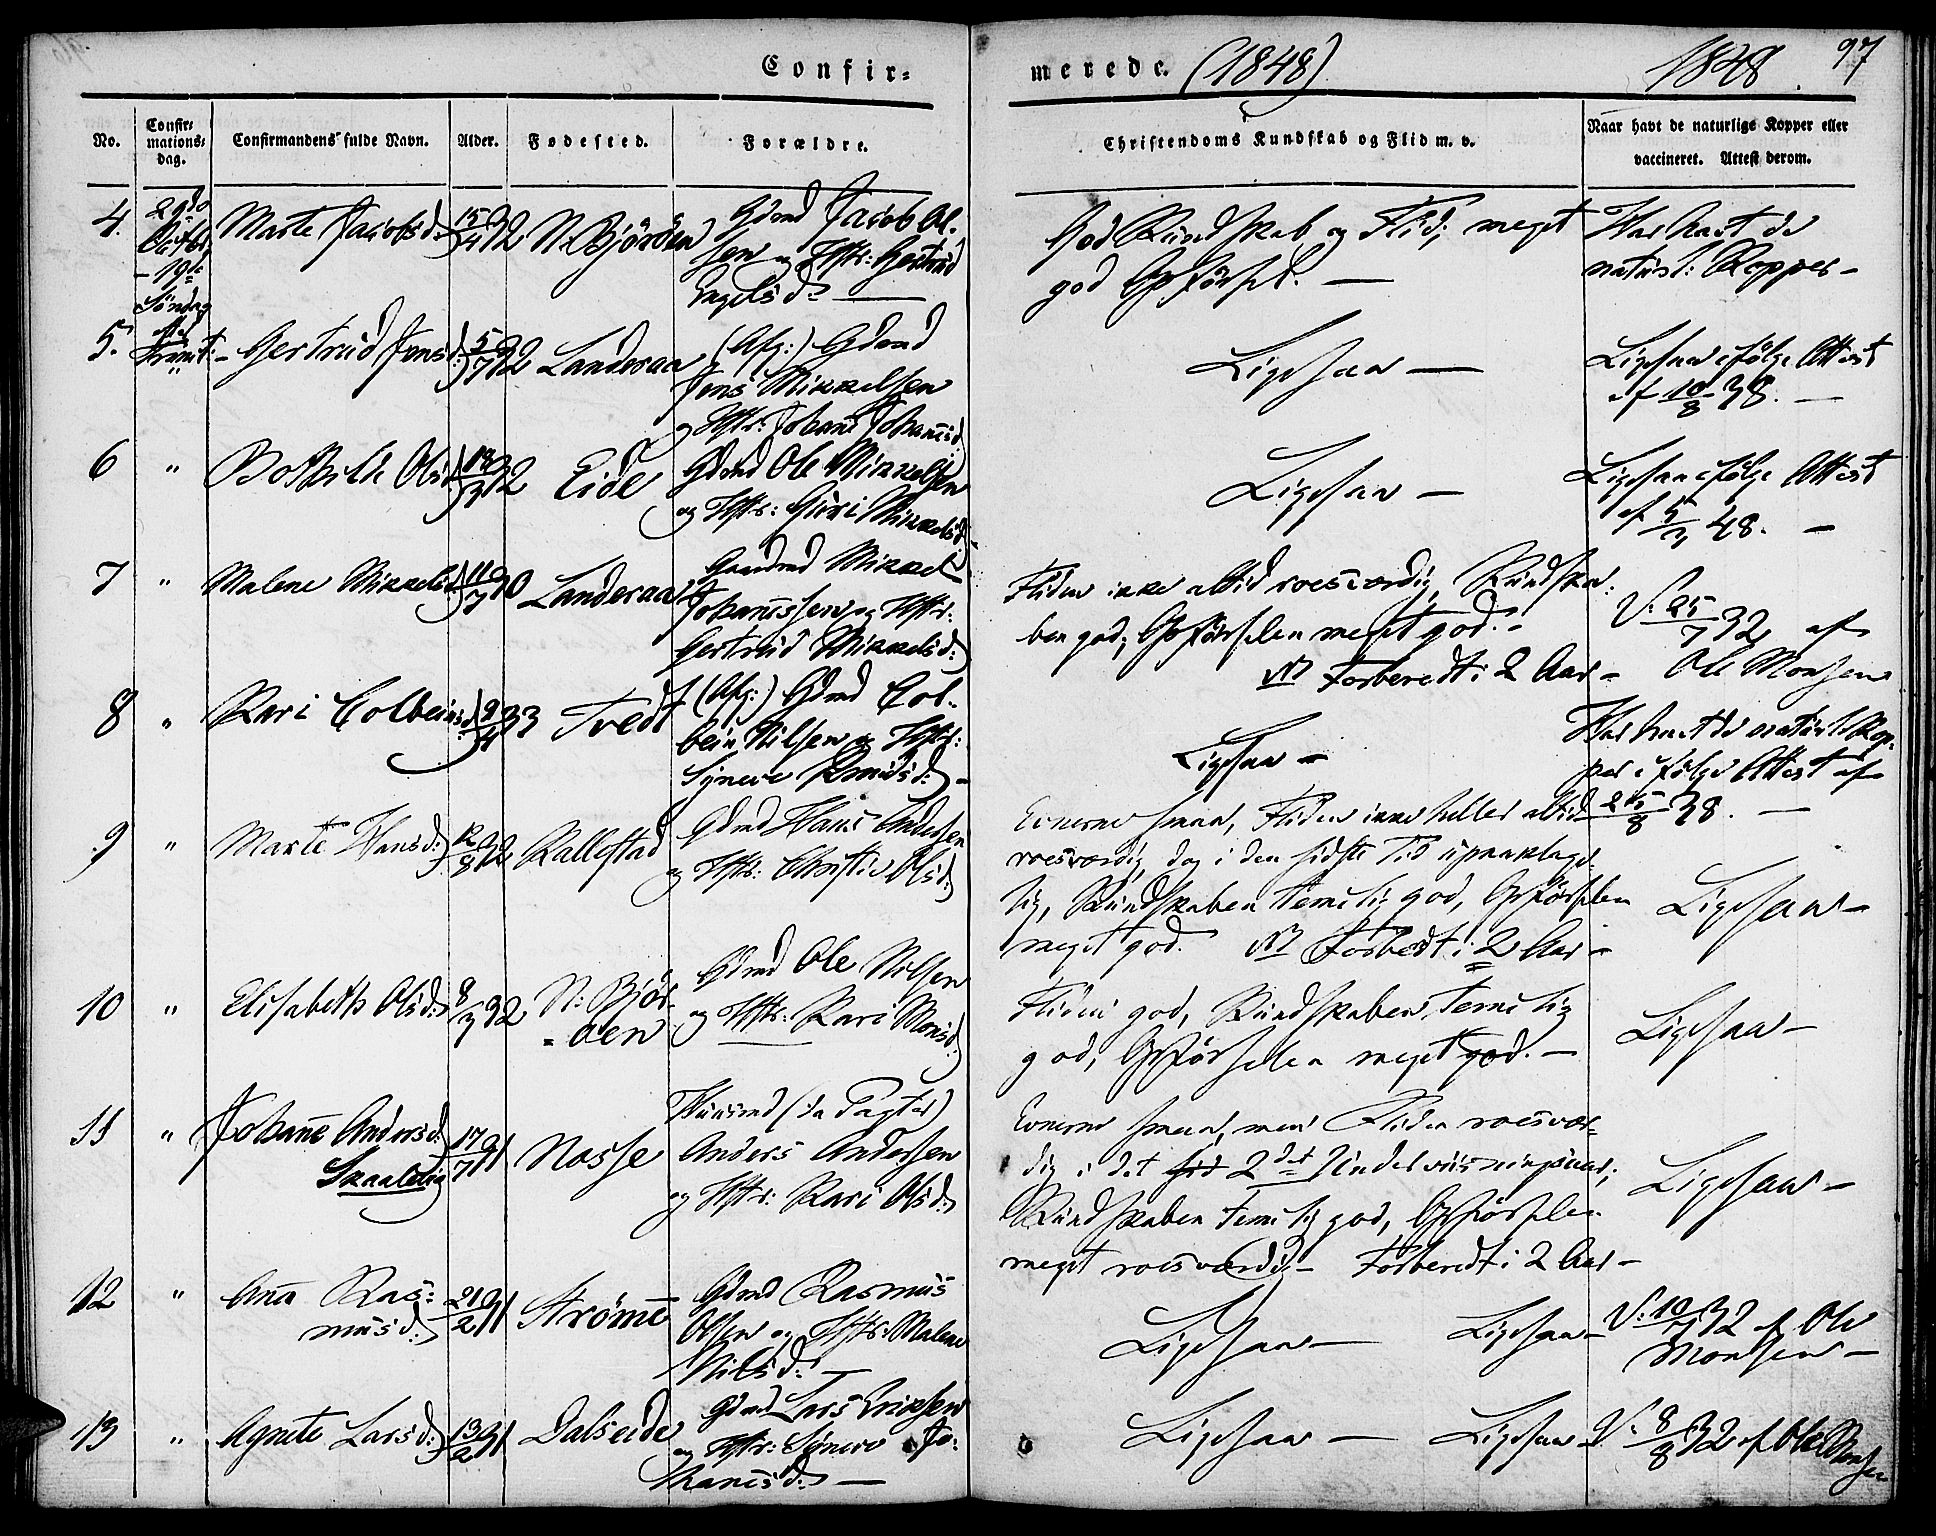 Confir=
merede. (1848)
1848.
97
No.
Confir=
mations=
dag.
Confirmandens fulde Navn.
Alder.
Fødested.
Forældre.
Christendoms Kundskab og Flid m. v.
Naar havt de naturlige Kopper eller
vaccineret. Attest derom.
4.
19de
Søndag
Trinit:
Marte Jacobsd:
15/4 32
N: Bjørden
Gdmd Jacob Ol-
sen og Hstr: Gertrud
Engelsd: —
God Kundskab og Flid; meget
god Opførsel. —
Har havt de
naturl: Kopper —
5.
"
Gertrud Jensd:
5/7 32
Landeraa
(Afg:) Gdmd
Jens Mikkelsen
og Hstr: Johane Johanesd:
Ligesaa —
Ligesaa ifølge Attest
af 10/8 38. —
6
"
Bothilde Olsd:
32
Eide
Gdmd Ole Mikkelsen
og Hstr: Guri Mikkelsd:
Ligesaa —
Ligesaa ifølge Attest
af 5/3 48. —
7
"
Malene Mikkelsd:
11/7 30
Landeraa
Mikkel
Johannessen og Hstr:
Gertrud Mikkelsd:
Fliden ikke altid roesværdig, Kundska-
ben god; Opførselen meget god. -
NB Forberedt i 2 Aar -
V. 25/7 32 af
Ole Monsen
8
"
Kari Colbeinsd:
33
Tvedt
(Afg:) Gdmd Col-
bein Nilsen og Hstr:
Synneve —
Ligesaa —
Har havt de naturl Kop-
per ifølge Attest af
25/8 38. —
9
"
Marte Hansd:
12/8 32
Kallestad
Gdmd Hans Andersen
og Hstr: Christie Olsd:
Evnerne smaa, Fliden ikke heller altid
roesværdig, dog i den sidste Tid upaaklage-
lig, Kundskaben temelig god, Opførselen
meget god. NB Forberedt i 2 Aar -
Ligesaa —
10
"
Elisabeth Olsd:
8/3 32
N: Bjør-
- den
Gdmd Ole Nilsen
og Hstr: Kari Monsd:
Fliden god, Kundskaben temelig
god, Opførselen meget god. —
Ligesaa —
11
"
Johane Andersd:
Skaalelia
17/7 31
Nosse
Huusmd (da Pagter)
Anders Andersen
og Hstr: Kari Olsd:
Evnerne smaa, men Fliden roesvær-
dig i det 2det Underviisningsaar;
Kundskaben temelig god, Opførselen
meget roesværdig — Forberedt i 2 Aar —
Ligesaa —
12
"
Ana Ras-
musd:
21/2 31
Strøme
Gdmd Rasmus
Olsen og Hstr: Malene
Nilsd: —
Ligesaa — Ligesaa —
V. 10/7 32 af Ole
Monsen —
13
"
Agnete Larsd:
13/2 31
Dalseide
Gdmd Lars Eriksen
og Hstr: Synneve Jo-
hanesd: —
Ligesaa — Ligesaa —
V. 8/8 32 af Ole Monsen